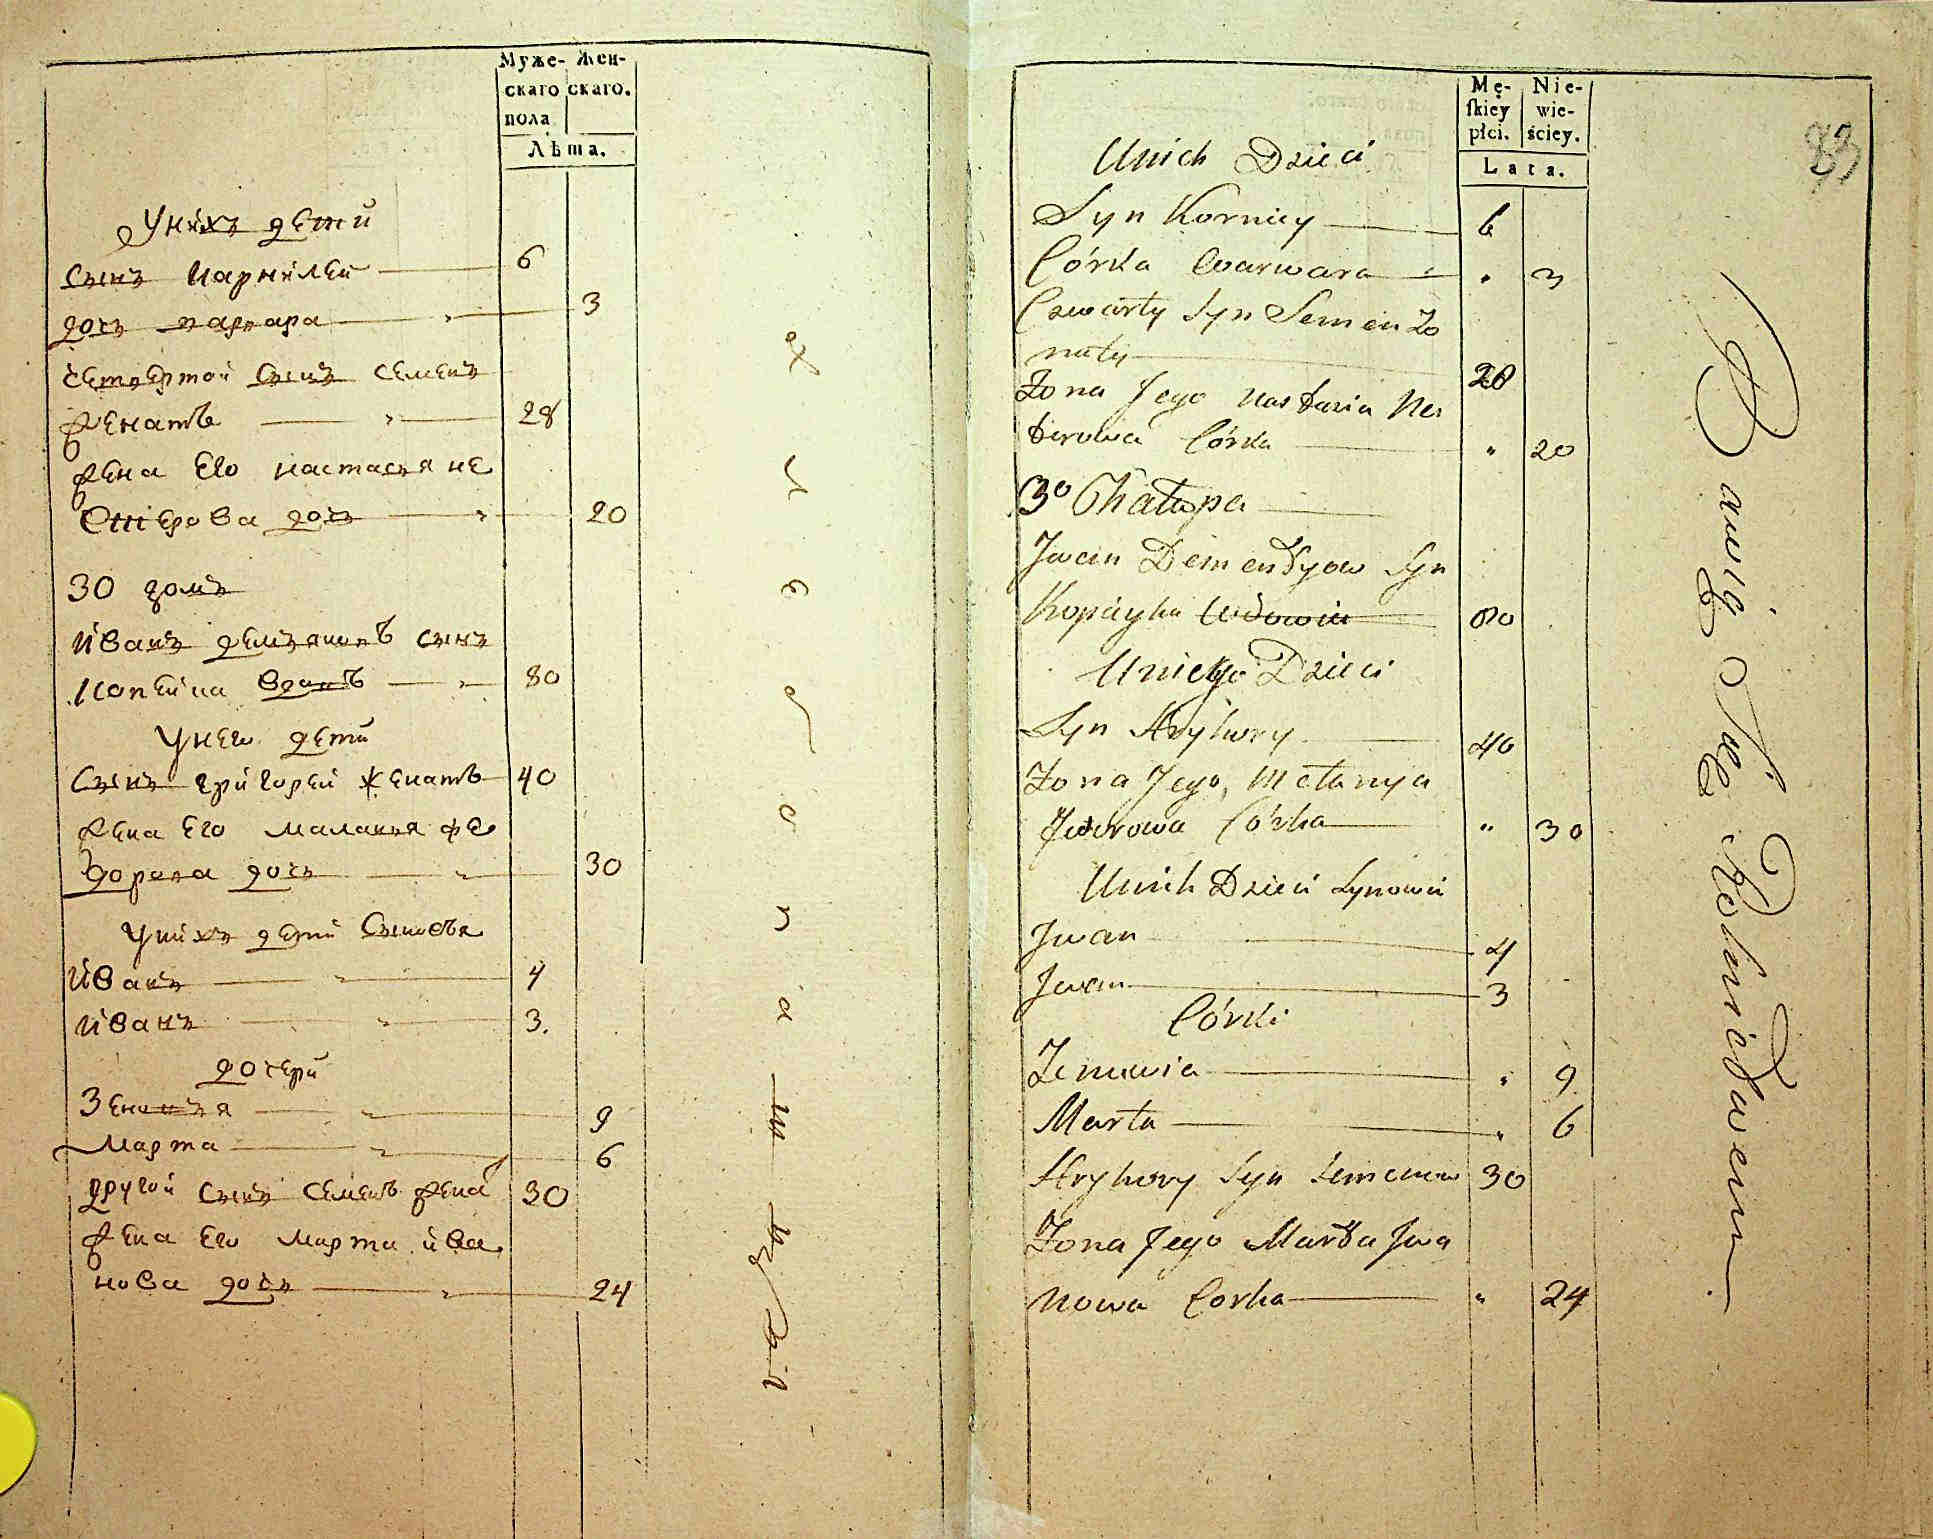 Муже- Жен-
скаго скаго.
пола
Лѣта.
Уних детй
сынъ Карнилей 6
дочъ варвара " 3
четвертой сынъ семенъ
женатъ " 28
жена Его настасья не
стерова дочъ " 20
30 домъ
йванъ демъяновъ сынъ
Копейка вдовъ " 80
Унего детй
сынъ григорей женатъ 40
жена Его маланья фе
дорова дочъ " 30
Унихъ детй сыновья
йванъ " 4
йванъ " 3.
дочерй
Зеновъя " 9
марта " 6
другой сынъ семенъ жена 30
жена Его марта йва
нова дочъ " 24
Mę- Nie-
ſkiey wie-
płci. ściey.
Lata.
83
Unich Dzieci
Syn Korniey 6
Córka Warwara " 3
Czwarty Syn Semen Żo
naty 28
Żona Jego Nastazia Nes
terowa Córka " 20
30 Chałupa
Jwan Dementyow Syn
Kopiayka Wdowiu 80
Uniego Dzieci
Syn Hryhory 40
Żona Jego, Mełanya
Fedorowa Córka " 30
Unich Dzieci Synowie
Jwan 4
Jwan 3
Córki
Zenowia " 9
Marta " 6
Hryhory Syn Semenow 30
Żona Jego Marta Jwa
nowa Corka " 24